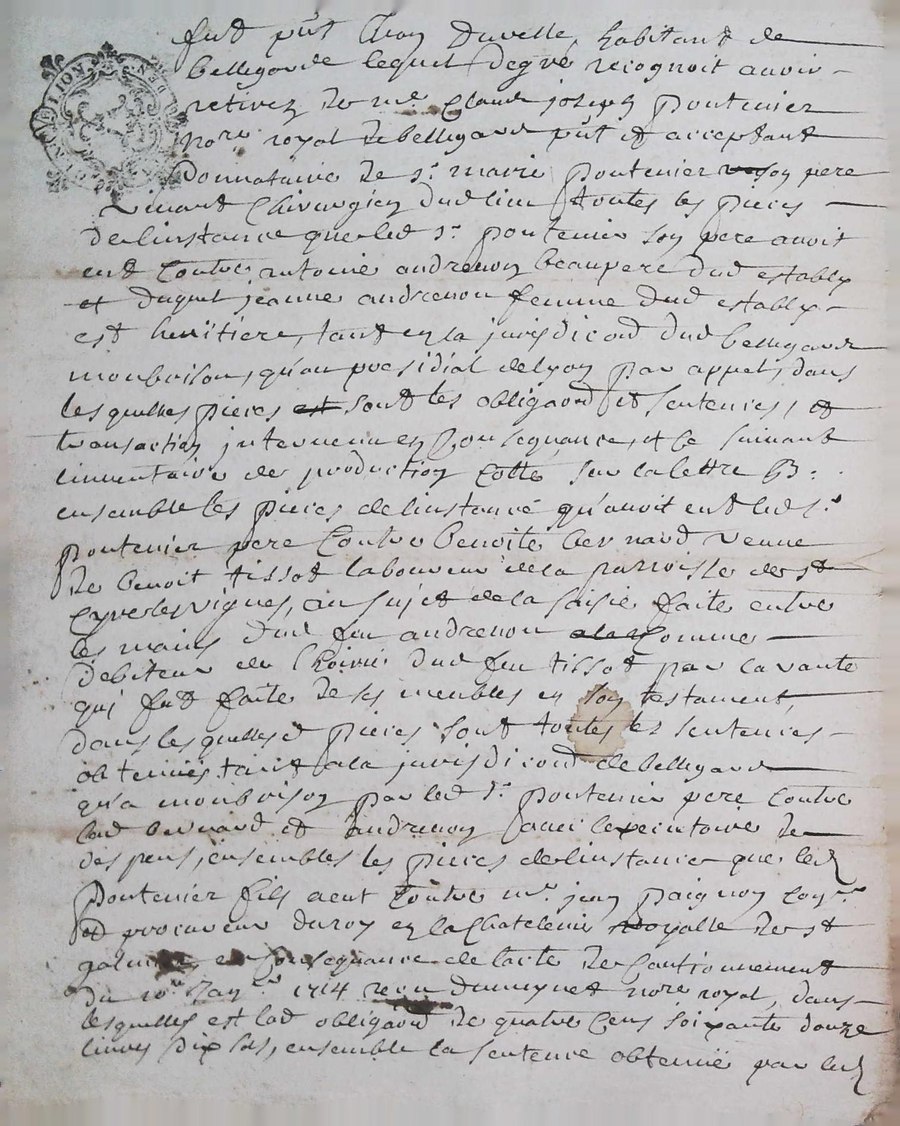 fut p̃nt Duvelle, habitant de
bellegarde lequel degré recognoit avoir
retirez de me. Claude joseph pontenier
nore. royal de bellegarde p̃nt et acceptant
Donnataire de sr. marie pontenier son pere
vivant Chirurgien dud lieu toutes les pieces
de linstance que led sr. pontenier son pere avoit
eut Contre antoine andrenon beaupere dud estably
et duquel jeanne andrenon femme dud estably
est heritiere, tant en la jurisdicon̄ dud bellegarde
monbrison, qu'au presidial de lyon par appel, dans
lesquelles pieces est sont les obligaon̄ et sentences, et
transaction intervenue en Consequance, et ce suivant
linventaire de production Cotté sur la lettre B.
ensemble les pieces de linstance qu'avoit eut led sr.
pontenier pere Contre benoite bernard veuve
de benoit tissot laboureur de la parroisse de st
Cyre les vignes, au sujet de la saisie faite entre
les mains dud feu andrenon a la Comme
debiteur de lhoirie dud feu tissot par la vante
qui fut faite de ses meubles en son testament,
dans lesquelles pieces sont toutes les sentences
obtenües tant a la jurisdicon̄ de bellegarde
qu'a monbrison par led sr. pontenier pere Contre
lad bernard et andrenon avec lexecutoire de
despens, ensembles les pieces de linstance que led
pontenier fils a eut Contre me. jean paignon
et procureur du roy en la Chatelenie royalle de st
galmier, en Consequance de lacte de Cautionnement
du 10e. Janr. 1714 receu nore royal, dans
lesquelles est lad obligaon̄ de quatre Cens soixante douze
livres dix sols, ensemble la sentence obtenüe par led